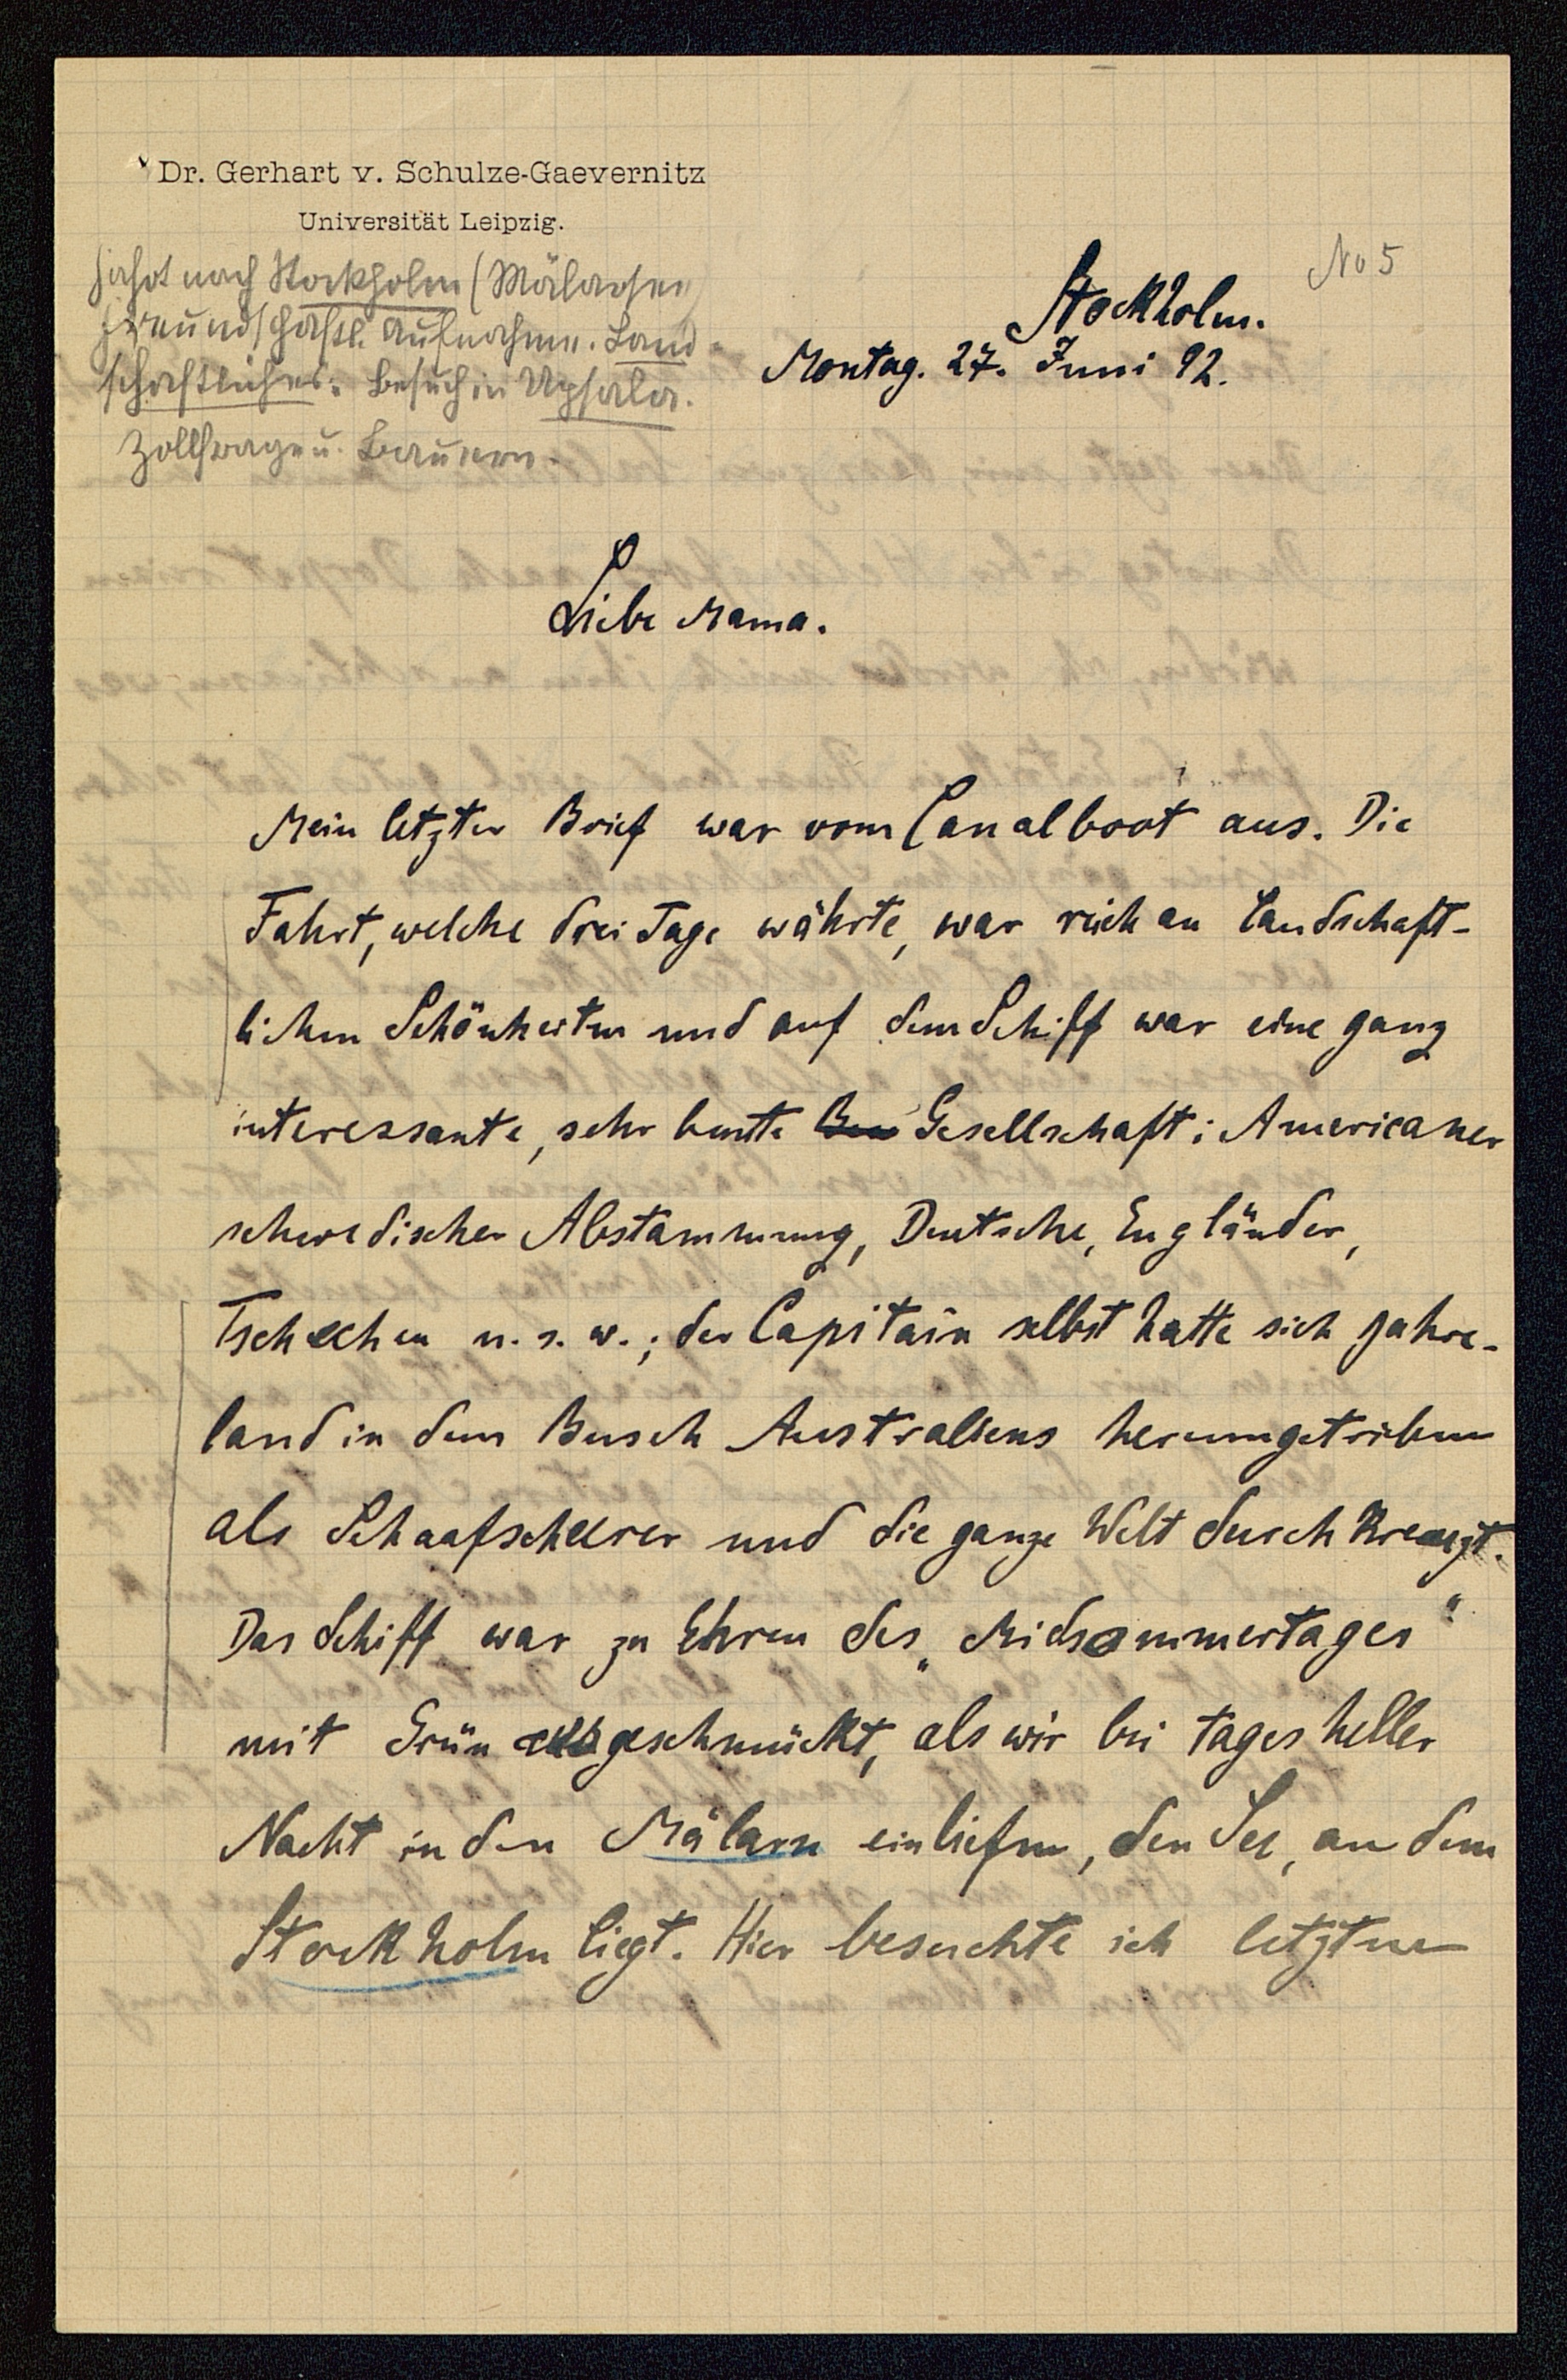 Dr. Gerhart v. Schulze-Gaevernitz
Universität Leipzig.
Fahrt nach Stockholm (Mälarsee)
freundschaftl. Aufnahme. Land-
schaftliches. Besuch in Upsala.
Zollfrage u. Bauern.
No 5
Stockholm.
Montag. 27. Juni 92.
Liebe Mama.
Mein letzter Brief war vom Canalboot aus. Die
Fahrt, welche drei Tage währte, war reich an landschaft-
lichen Schönheiten und auf dem Schiff war eine ganz
interessante, sehr bunte Gesellschaft; Americaner
schwedischer Abstammung, Deutsche, Engländer,
Tschechen u. s. w.; der Capitain selbst hatte sich jahre-
land in dem Busch Australiens herumgetrieben
als Schaafscheerer und die ganze Welt durchkreuzt.
Das Schiff war zu Ehren des „Midsommertages“
mit Grün geschmückt, als wir bei tagesheller
Nacht in den Mälarn einliefen, den See, an dem
Stockholm liegt. Hier besuchte ich letzten